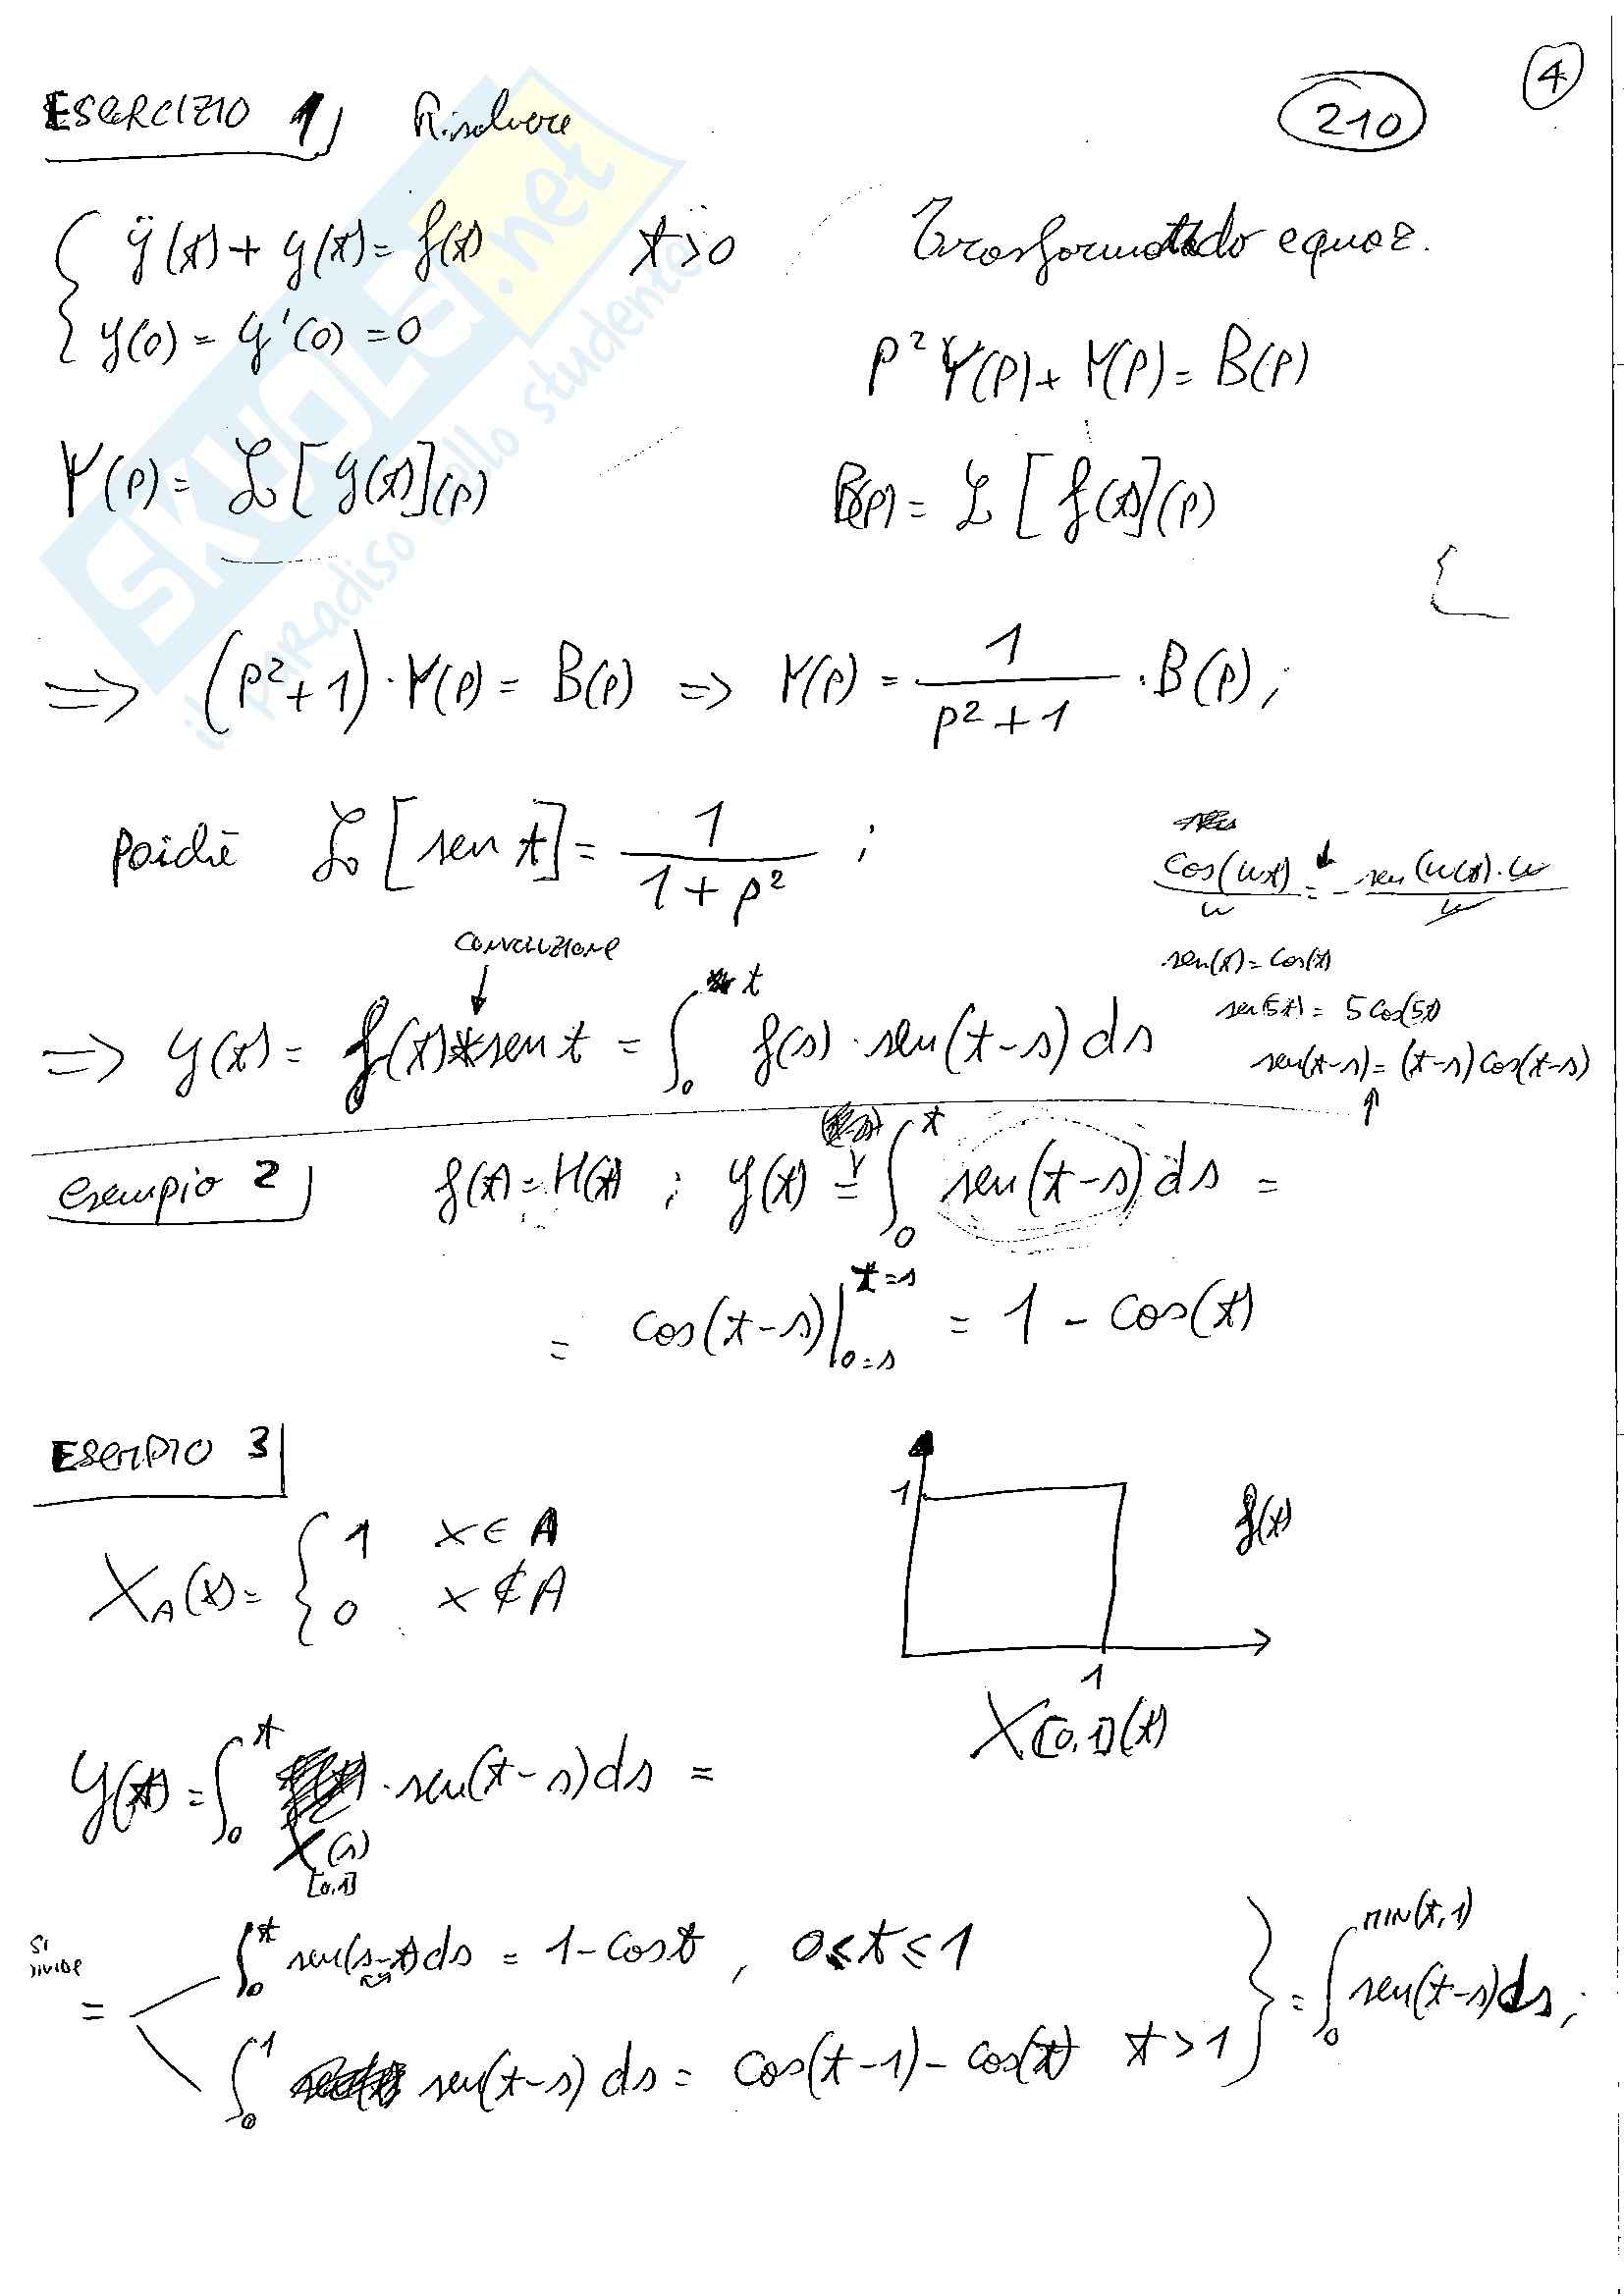 4
210
ESERCIZIO 1) Risolvere
ÿ(t) + y(t) = f(t) t>0
y(0) = y'(0) = 0
Trasformando equaz.
P² Y(P) + Y(P) = B(P)
Y(P) = ℒ[y(t)](P)
B(P) = ℒ[f(t)](P)
=> (P²+1)·Y(P) = B(P) => Y(P) = 1/(P²+1) · B(P);
Poichè ℒ[sen t] = 1/(1+P²) ;
cos(wt)/w = -sen(w(t)·w/w
sen(t) = cos(t)
sen(5t) = 5cos(5t)
sen(t-s) = (t-s)cos(t-s)
convoluzione
=> y(t) = f(t)*sen t = ∫₀ᵗ f(s)·sen(t-s) ds
esempio 2) f(t) = H(t) ; y(t) = ∫₀ᵗ sen(t-s) ds =
= cos(t-s)| t=s 0=s = 1 - cos(t)
ESEMPIO 3
1
f(t)
1
X[0,1](t)
X_A(t) = { 1 x∈A
0 x∉A
y(t) = ∫₀ᵗ X[0,1](s) · sen(t-s)ds =
SI DIVIDE
= ∫₀ᵗ sen(s-t)ds = 1-cost , 0≤t≤1
∫₀¹ sen(t-s) ds = cos(t-1) - cos(t) t>1
} = ∫₀^MIN(t,1) sen(t-s)ds;
SKUOLA.net
il paradiso dello studente